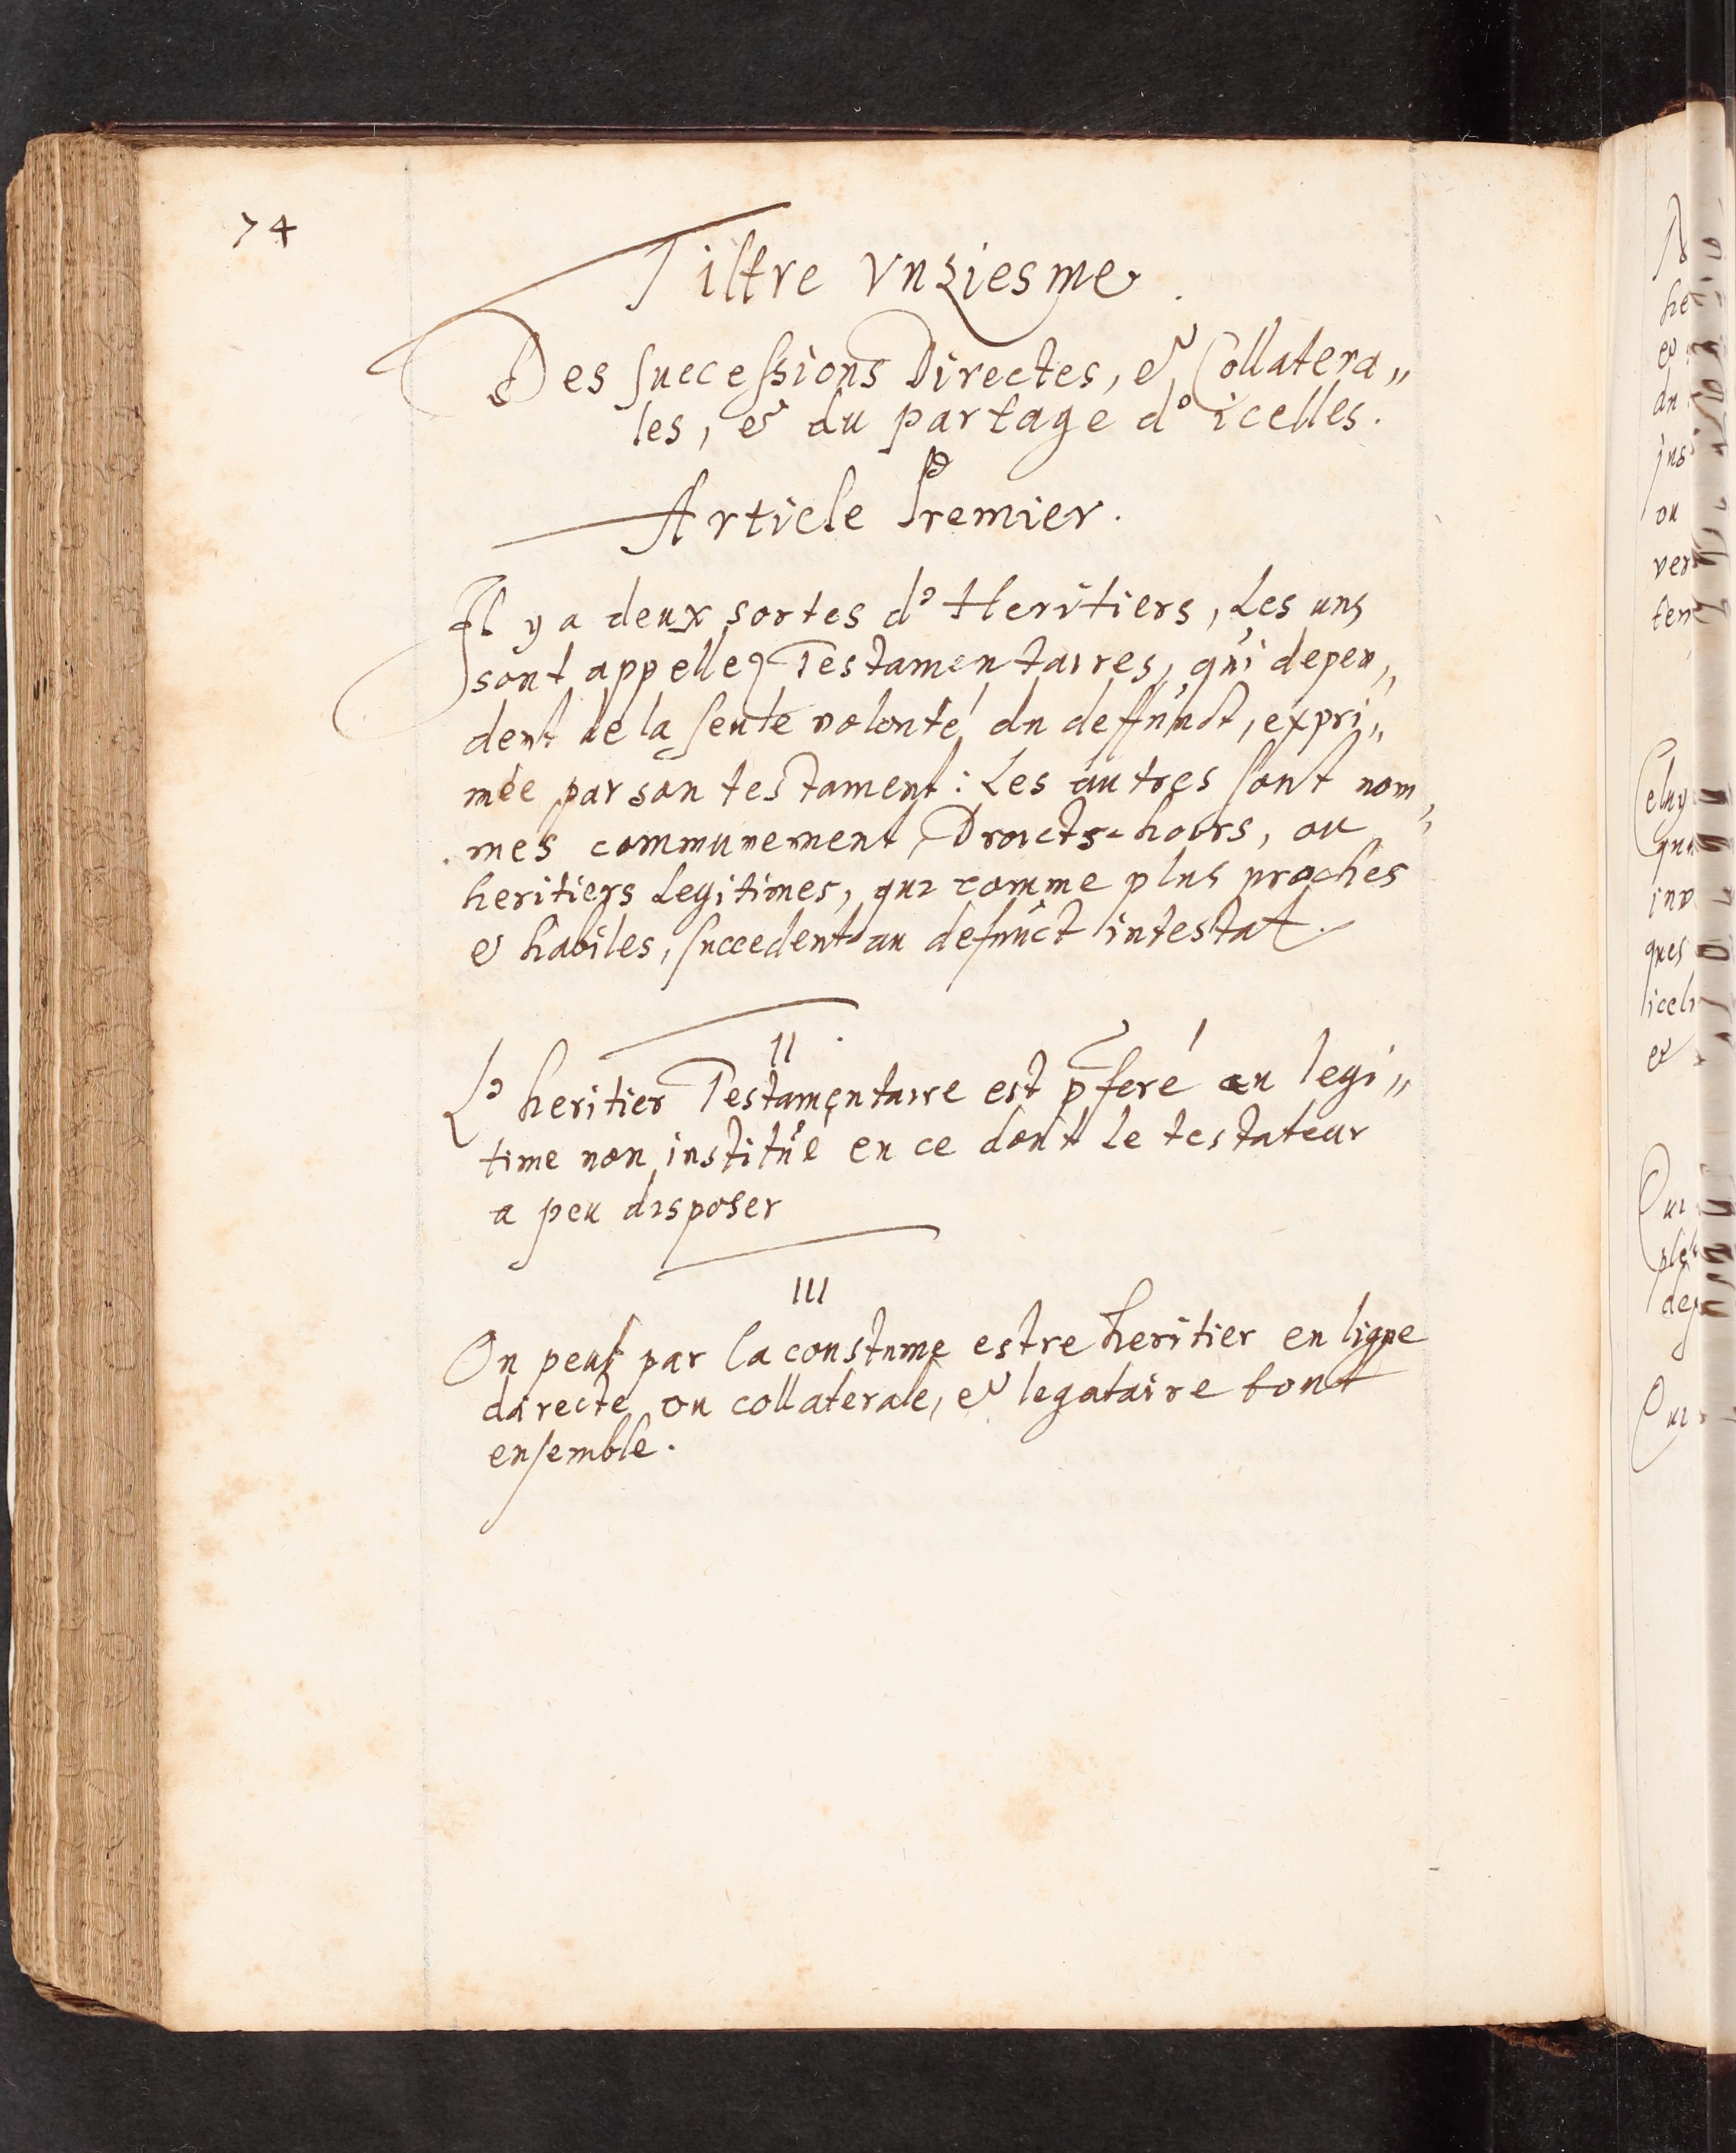 74
Tiltre Vnziesme.
Des successions Directes, & Collatera„
les, & du partage d'icelles.
Article Premier.
Il y a deux sortes d'Heritiers, Les uns
sont appellez Testamentaires, qui depen„
dent de la seule volonté du deffunct, expri„
mée par son testament : Les autres sont nom„
mes communement Droicts-hoirs, ou
heritiers Legitimes, qui comme plus proches
& habiles, succedent au defunct intestat.
II.
L'heritier Testamentaire est p̄feré au legi„
time non institué en ce dont le testateur
a peu disposer
III
On peut par la coustume estre heritier en ligne
directe ou collaterale, & legataire tout
ensemble.